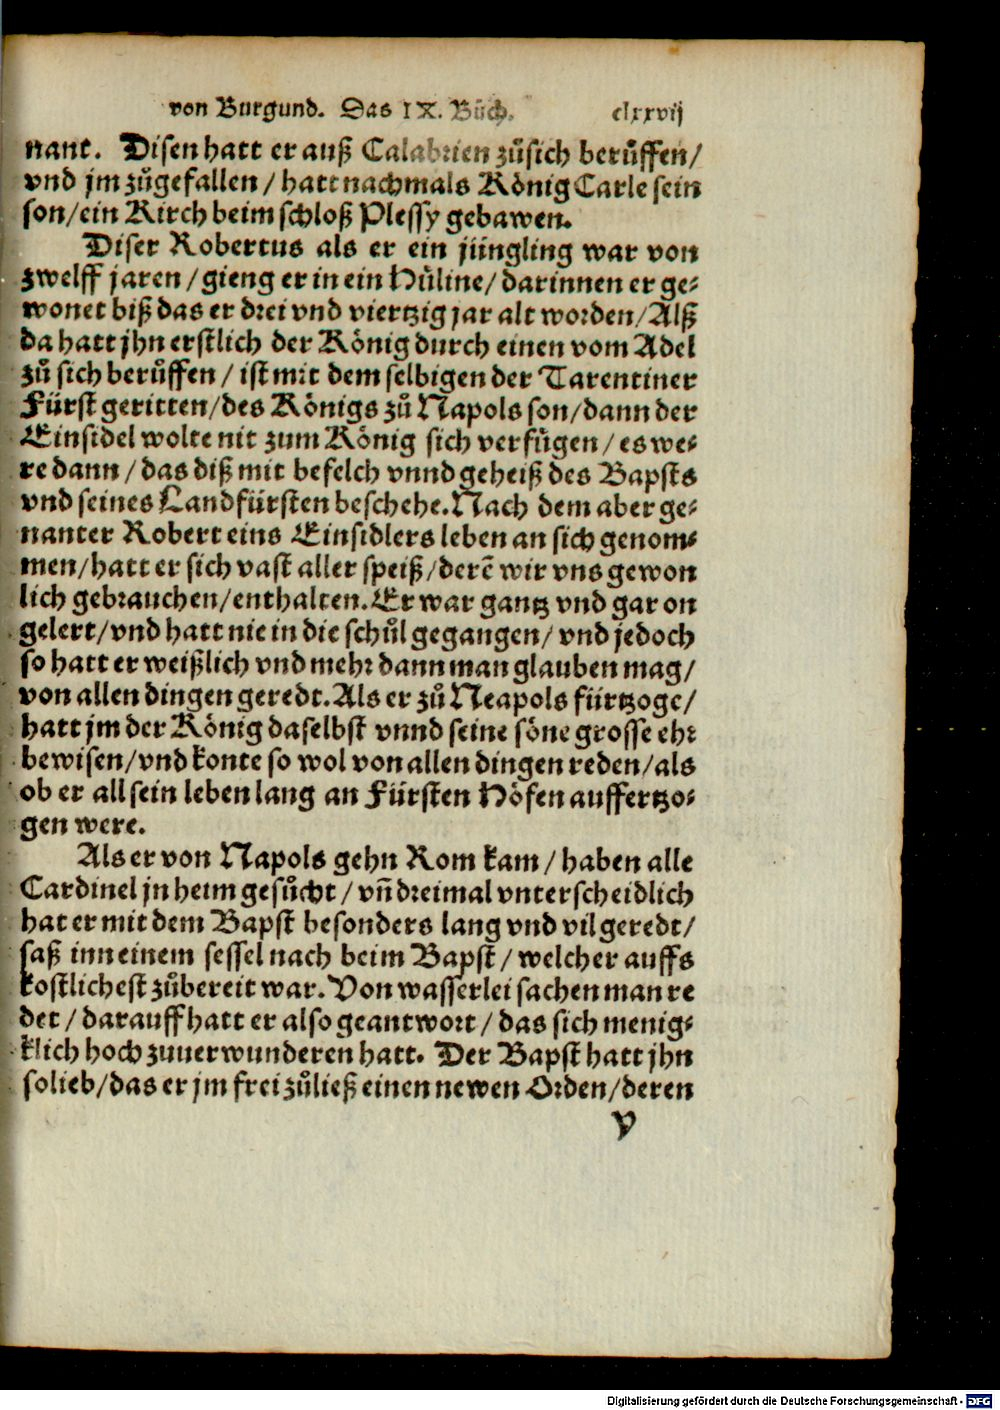 von Burgund. Das IX. Bůch. clxxvij
nant. Disen hatt er auß Calabrien zůsich berůffen/
vnd jm zůgefallen / hatt nachmals König Carle sein
son/ein Kirch beim schloß Plessy gebawen.
Diser Robertus als er ein jüngling war von
zwelff jaren / gieng er in ein Hüline/ darinnen er ge⸗
wonet biß das er drei vnd viertzig jar alt worden/ Alß
da hatt jhn erstlich der König durch einen vom Adel
zů sich berůffen / ist mit dem selbigen der Tarentiner
Fürst geritten/des Königs zů Napols son/dann der
Einsidel wolte nit zum König sich verfůgen / es we⸗
re dann / das diß mit befelch vnnd geheiß des Bapsts
vnd seines Landfürsten beschehe. Nach dem aber ge⸗
nanter Robert eins Einsidlers leben an sich genom⸗
men/hatt er sich vast aller speiß/derē wir vns gewon
lich gebrauchen/enthalten. Er war gantz vnd gar on
gelert/vnd hatt nie in die schůl gegangen/ vnd jedoch
so hatt er weißlich vnd mehr dann man glauben mag/
von allen dingen geredt. Als er zů Neapols fürtzoge/
hatt jm der König daselbst vnnd seine söne grosse ehr
bewisen/vnd konte so wol von allen dingen reden/als
ob er all sein leben lang an Fürsten Höfen auffertzo⸗
gen were.
Als er von Napols gehn Rom kam / haben alle
Cardinel jn heimgesůcht / vn̄ dreimal vnterscheidlich
hat er mit dem Bapst besonders lang vnd vil geredt/
saß inn einem sessel nach beim Bapst / welcher auffs
kostlichest zůbereit war. Von wasserlei sachen man re
det / darauff hatt er also geantwort / das sich menig⸗
klich hoch zuuerwunderen hatt. Der Bapst hatt jhn
solieb/das er jm frei zůließ einen newen Orden/deren
V
Digitalisierung gefördert durch die Deutsche Forschungsgemeinschaft - DFG